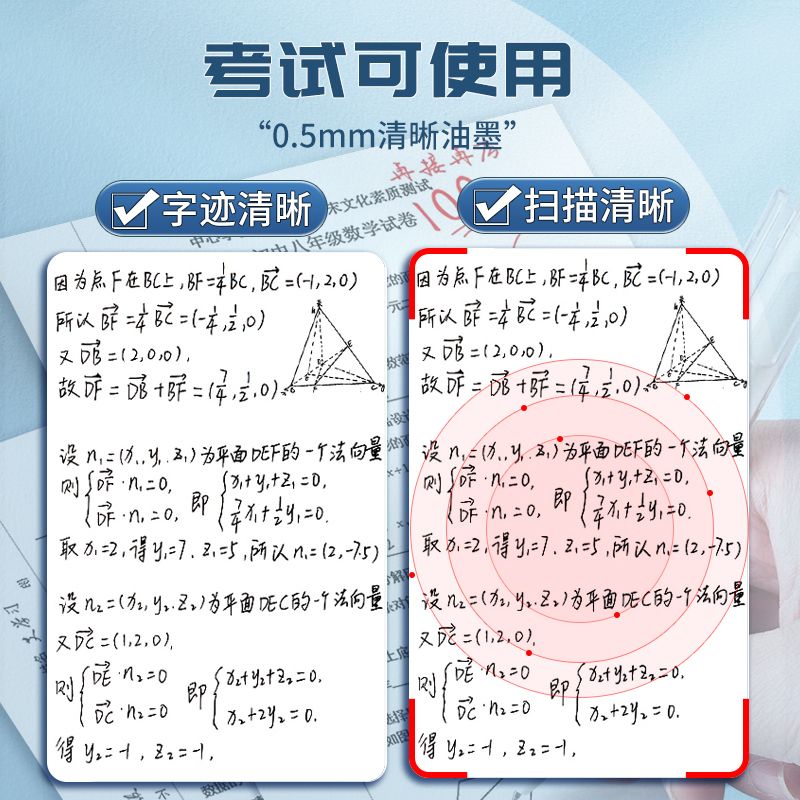 考试可使用
“0.5mm清晰油墨”
再接再
100
末文化素质测试
中八年级数学试卷
字迹清晰
因为点F在BC上,BF=¼BC,BC→=(-1,2,0)
所以BF→=¼BC→=(-¼,½,0)
又DB→=(2,0,0),
故DF→=DB→+BF→=(7/4,½,0)
设n₁=(x₁,y₁.z₁)为平面DEF的一个法向量
则{DF→·n₁=0, 即{x₁+y₁+z₁=0,
DF→·n₁=0, 7/4x₁+½y₁=0.
取x₁=2,得y₁=7.z₁=5,所以n₁=(2,-7.5)
设n₂=(x₂,y₂.z₂)为平面DEC的一个法向量
又DC→=(1,2,0).
则{DE→·n₂=0 即{x₂+y₂+z₂=0.
DC→·n₂=0 x₂+2y₂=0.
得y₂=-1,z₂=-1,
扫描清晰
因为点F在BC上,BF=¼BC,BC→=(-1,2,0)
所以BF→=¼BC→=(-¼,½,0)
又DB→=(2,0,0),
故DF→=DB→+BF→=(7/4,½,0)
设n₁=(x₁,y₁.z₁)为平面DEF的一个法向量
则{DF→·n₁=0, 即{x₁+y₁+z₁=0,
DF→·n₁=0, 7/4x₁+½y₁=0.
取x₁=2,得y₁=7.z₁=5,所以n₁=(2,-7.5)
设n₂=(x₂,y₂.z₂)为平面DEC的一个法向量
又DC→=(1,2,0).
则{DE→·n₂=0 即{x₂+y₂+z₂=0.
DC→·n₂=0 x₂+2y₂=0.
得y₂=-1,z₂=-1,